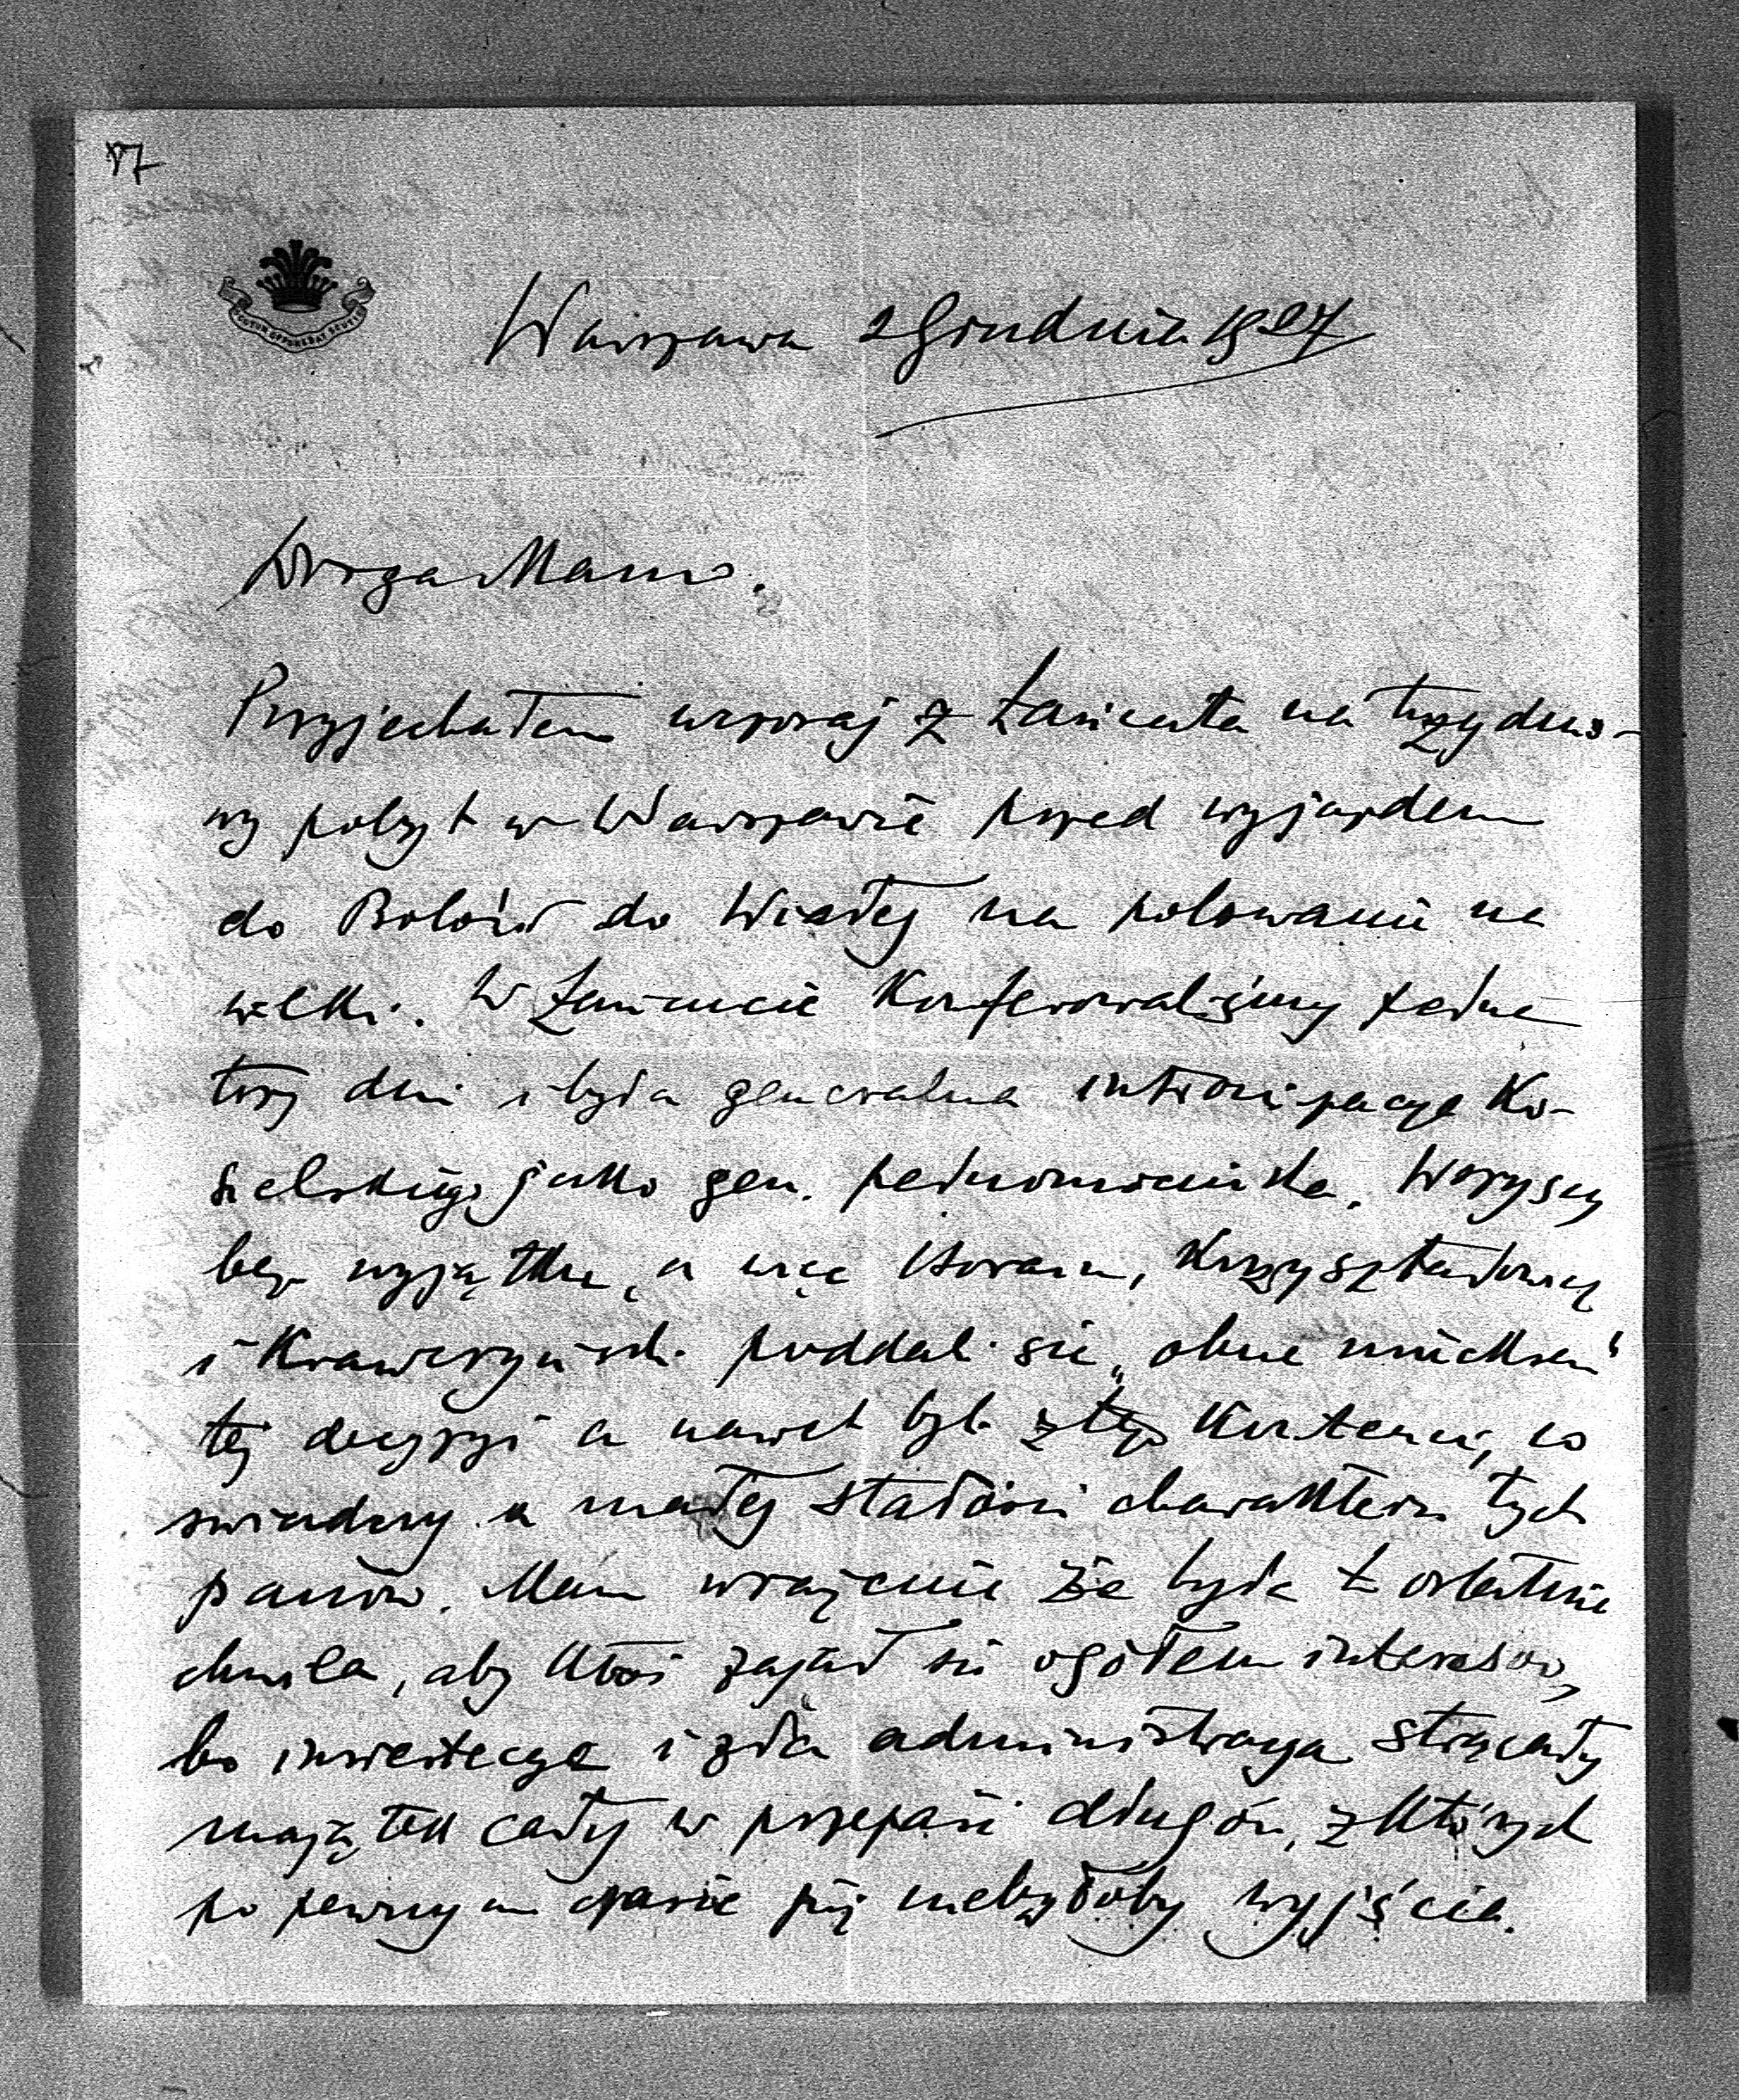 77
SCUTUM OPPONEBAT SCUTIS
Warszawa 2 Grudnia 1927
Droga Mamo.
Przyjechałem wczoraj z Łańcuta na trzydnio-
wy pobyt w Warszawie przed wyjazdem
do do Wisły na polowanie na
wilki. W Łańcucie konferowaliśmy pełne
trzy dni i była generalna intronizacya Ko-
sielskiego jako gen. pełnomocnika. Wszyscy
bez wyjątku, a więc Krzyształowicz
i Krawczyński poddali się „ohne mucksen"
tej decyzyi a nawet byli z tego kontenci, co
świadczy o małej stałości charakteru tych
panów. Mam wrażenie że była to ostatnia
chwila, aby ktoś zajął się ogółem interesów,
bo inwestycye i zła administracya strącały
majątek cały w przepaść długów, z których
po pewnym czasie już niebyłoby wyjścia.